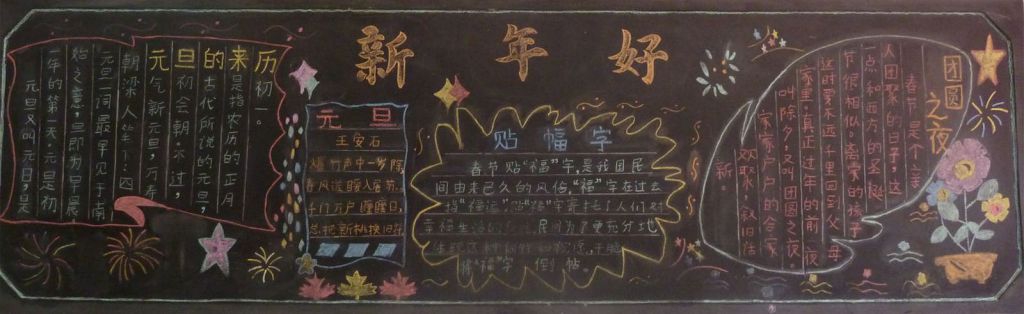 新年好
元旦的来历
元旦又叫元日，是
一年的第一天。元是初
始之意，旦即为早晨
元旦一词最早见于南
朝梁人
元气新元旦，万寿
初会朝。不过，
古代所说的元旦，
是指农历的正月
初一。
元旦
王安石
爆竹声中一岁除
春风送暖入屠苏
千门万户曈曈日
总把新桃换旧符
贴福字
春节贴“福”字，是我国民
间由来已久的风俗。“福”字在过去
指“福运”
幸福生活的
倒帖。
团圆之夜
春节是个亲
人团聚的日子，这
一点和西方的圣诞
节很相似。离家的孩子
这时要不远千里回到父母
家里。真正过年的前一夜
叫除夕，又叫团圆之夜。
家家户户的合家
欢聚，叙旧话
新。